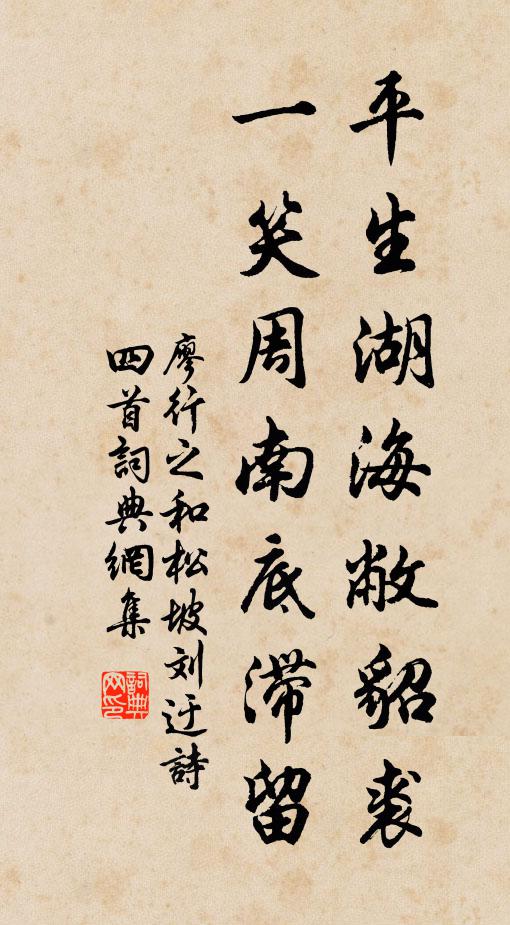 平生湖海敝貂裘
一笑周南底滞留
廖行之和松坡刘迂詩
四首詞典網集
詞典
网印